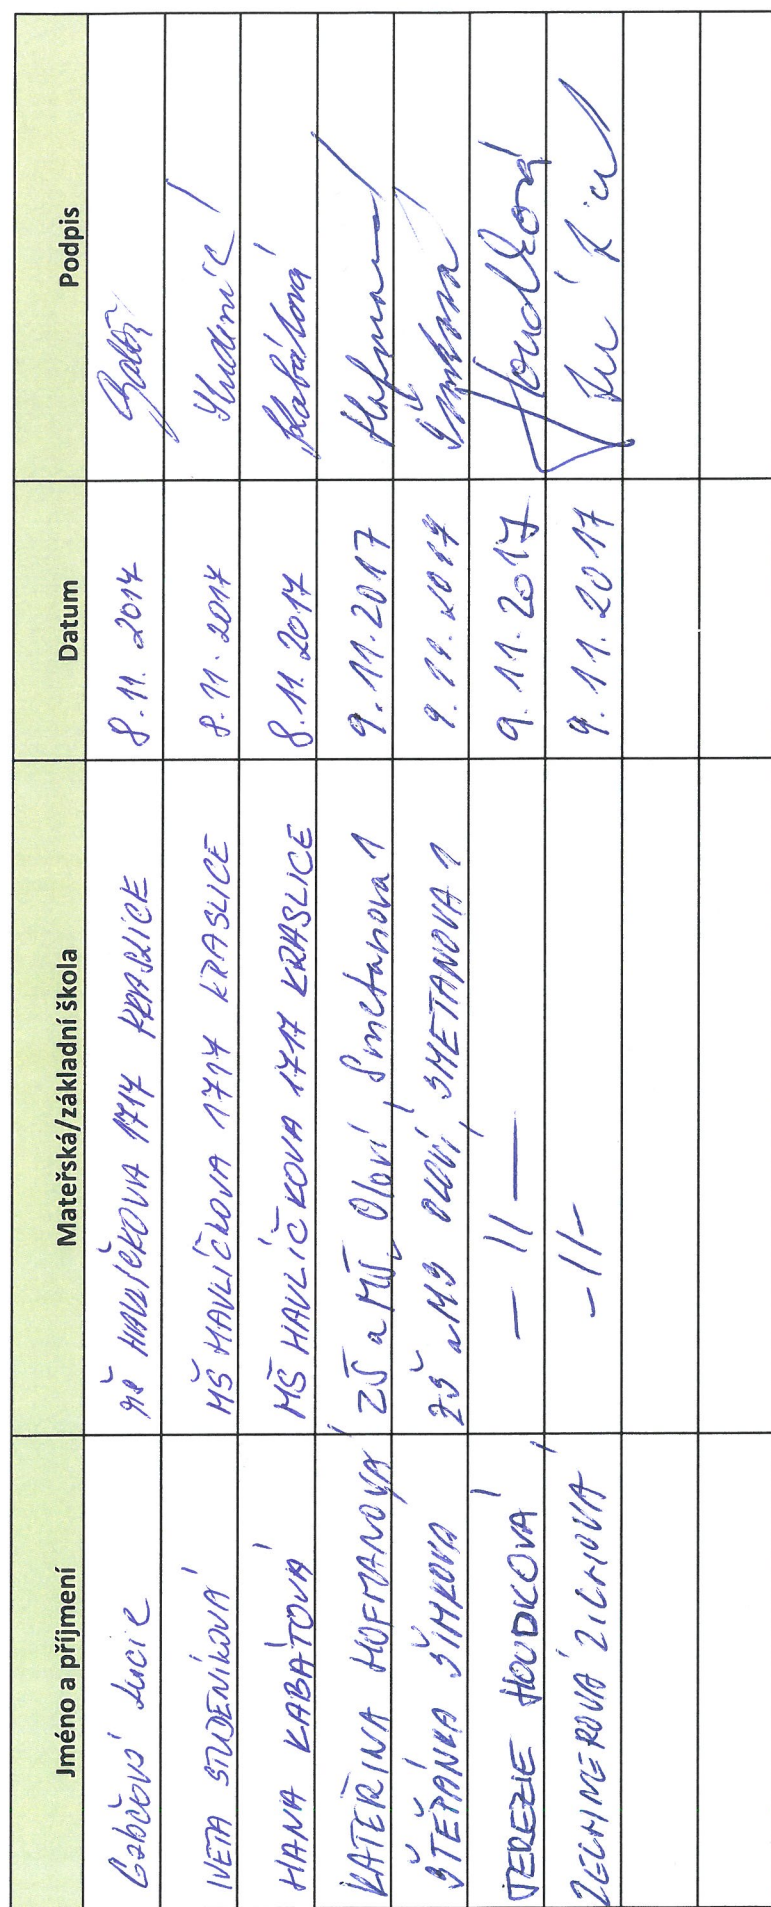 Jméno a příjmení Mateřská/základní škola Datum Podpis
Lucie MŠ HAVLÍČKOVA 1717 KRASLICE 8.11.2017
IVETA STUDENÍKOVÁ MŠ HAVLÍČKOVA 1717 KRASLICE 8.11.2017
HANA KABÁTOVÁ MŠ HAVLÍČKOVA 1717 KRASLICE 8.11.2017 Kabátová
KATEŘINA HOFMANOVÁ ZŠ a MŠ, Oloví, Smetanova 1 9.11.2017
ŠTĚPÁNKA ŠIMKOVÁ ZŠ a MŠ OLOVÍ, SMETANOVA 1 9.11.2017 Šimková
TEREZIE HOUDKOVÁ — 11 — 9.11.2017 Houdková
ZECHMEROVÁ ZICHOVÁ - 11 - 9.11.2017